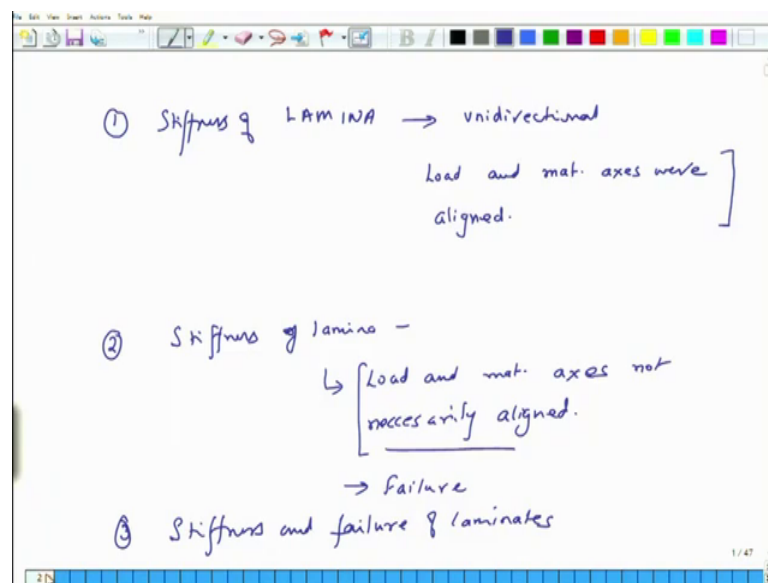 File Edit View Insert Actions Tools Help
① Stiffness of LAMINA → unidirectional
Load and mat. axes were
aligned.
② Stiffness of lamina -
↳ Load and mat. axes not
neccesarily aligned.
→ Failure
③ Stiffness and failure of laminates
1 / 47